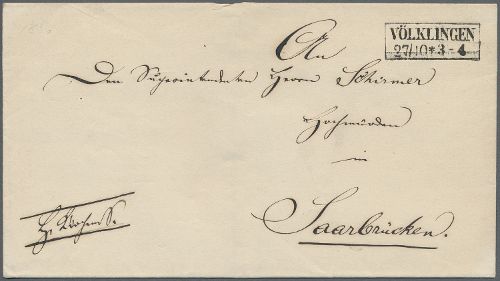 An
VÖLKLINGEN
27/10*3-4
Den Superintendenten Herrn Schirmer
Hochwürden
in
Saarbrücken.